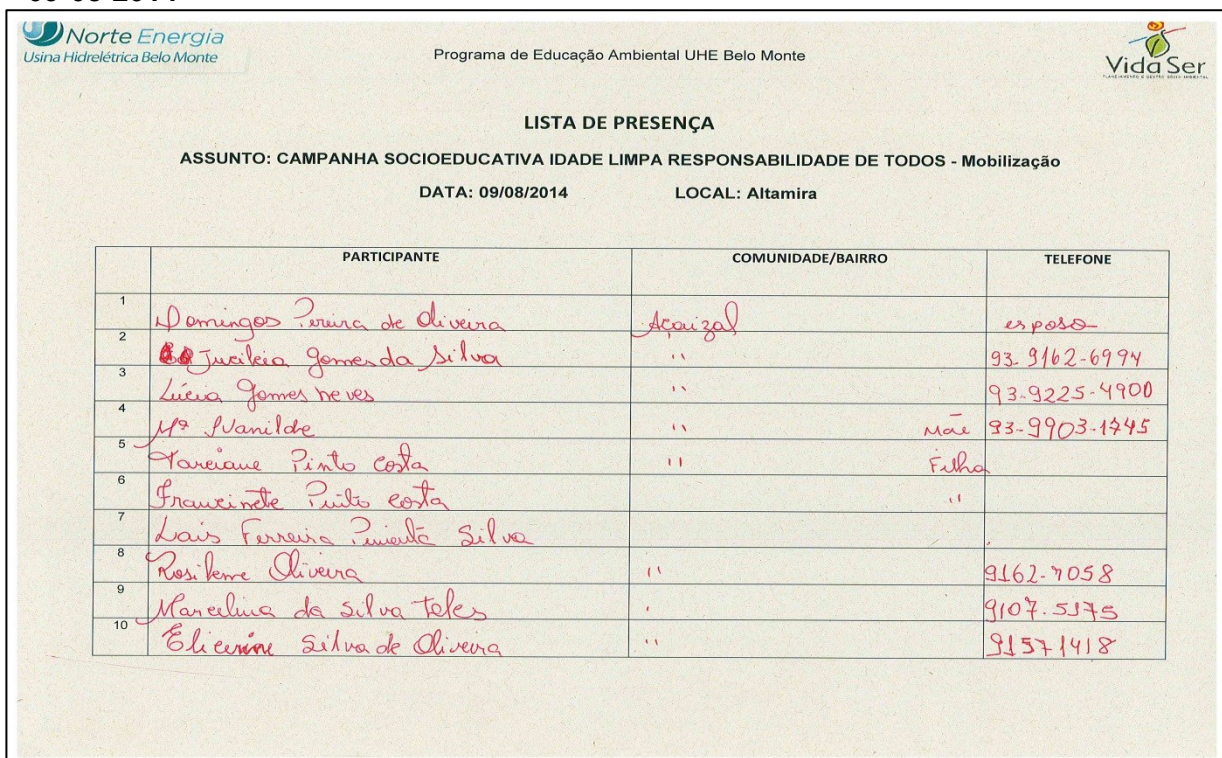 09-08-2014
Norte Energia
Usina Hidrelétrica Belo Monte
Programa de Educação Ambiental UHE Belo Monte
Vida Ser
LISTA DE PRESENÇA
ASSUNTO: CAMPANHA SOCIOEDUCATIVA IDADE LIMPA RESPONSABILIDADE DE TODOS - Mobilização
DATA: 09/08/2014 LOCAL: Altamira
PARTICIPANTE COMUNIDADE/BAIRRO TELEFONE
1 Domingos Pereira de Oliveira Açaizal esposo
2 Jucileia Gomes da Silva '' 93-9162-6994
3 Lúcia Gomes neves '' 93-9225-4900
4 Mª Ivanilde '' Mãe 93-9903-1745
5 Tarciane Pinto Costa '' Filha
6 Francinete Pinto costa ''
7 Lais Ferreira Silva
8 Rosilene Oliveira '' 9162-7058
9 Marcelina da Silva Teles ' 9107.5375
10 Silva de Oliveira '' 91571418